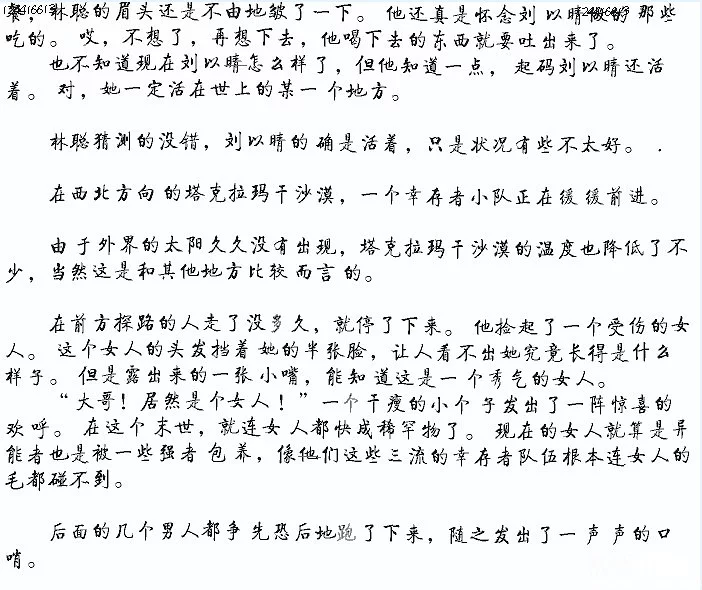 林聪的眉头还是不由地皱了一下。 他还真是怀念刘以晴做的那些
吃的。 哎, 不想了, 再想下去, 他喝下去的东西就要吐出来了。
也不知道现在刘以晴怎么样了, 但他知道一点, 起码刘以晴还活
着。 对, 她一定活在世上的某一个地方。
林聪猜测的没错, 刘以晴的确是活着, 只是状况有些不太好。 .
在西北方向的塔克拉玛干沙漠, 一个幸存者小队正在缓缓前进。
由于外界的太阳久久没有出现, 塔克拉玛干沙漠的温度也降低了不
少, 当然这是和其他地方比较而言的。
在前方探路的人走了没多久, 就停了下来。 他捡起了一个受伤的女
人。 这个女人的头发挡着她的半张脸, 让人看不出她究竟长得是什么
样子。 但是露出来的一张小嘴, 能知道这是一个秀气的女人。
“大哥! 居然是个女人! ” 一个干瘦的小个子发出了一阵惊喜的
欢呼。 在这个末世, 就连女人都快成稀罕物了。 现在的女人就算是异
能者也是被一些强者包养, 像他们这些三流的幸存者队伍根本连女人的
毛都碰不到。
后面的几个男人都争先恐后地跑了下来, 随之发出了一声声的口
哨。